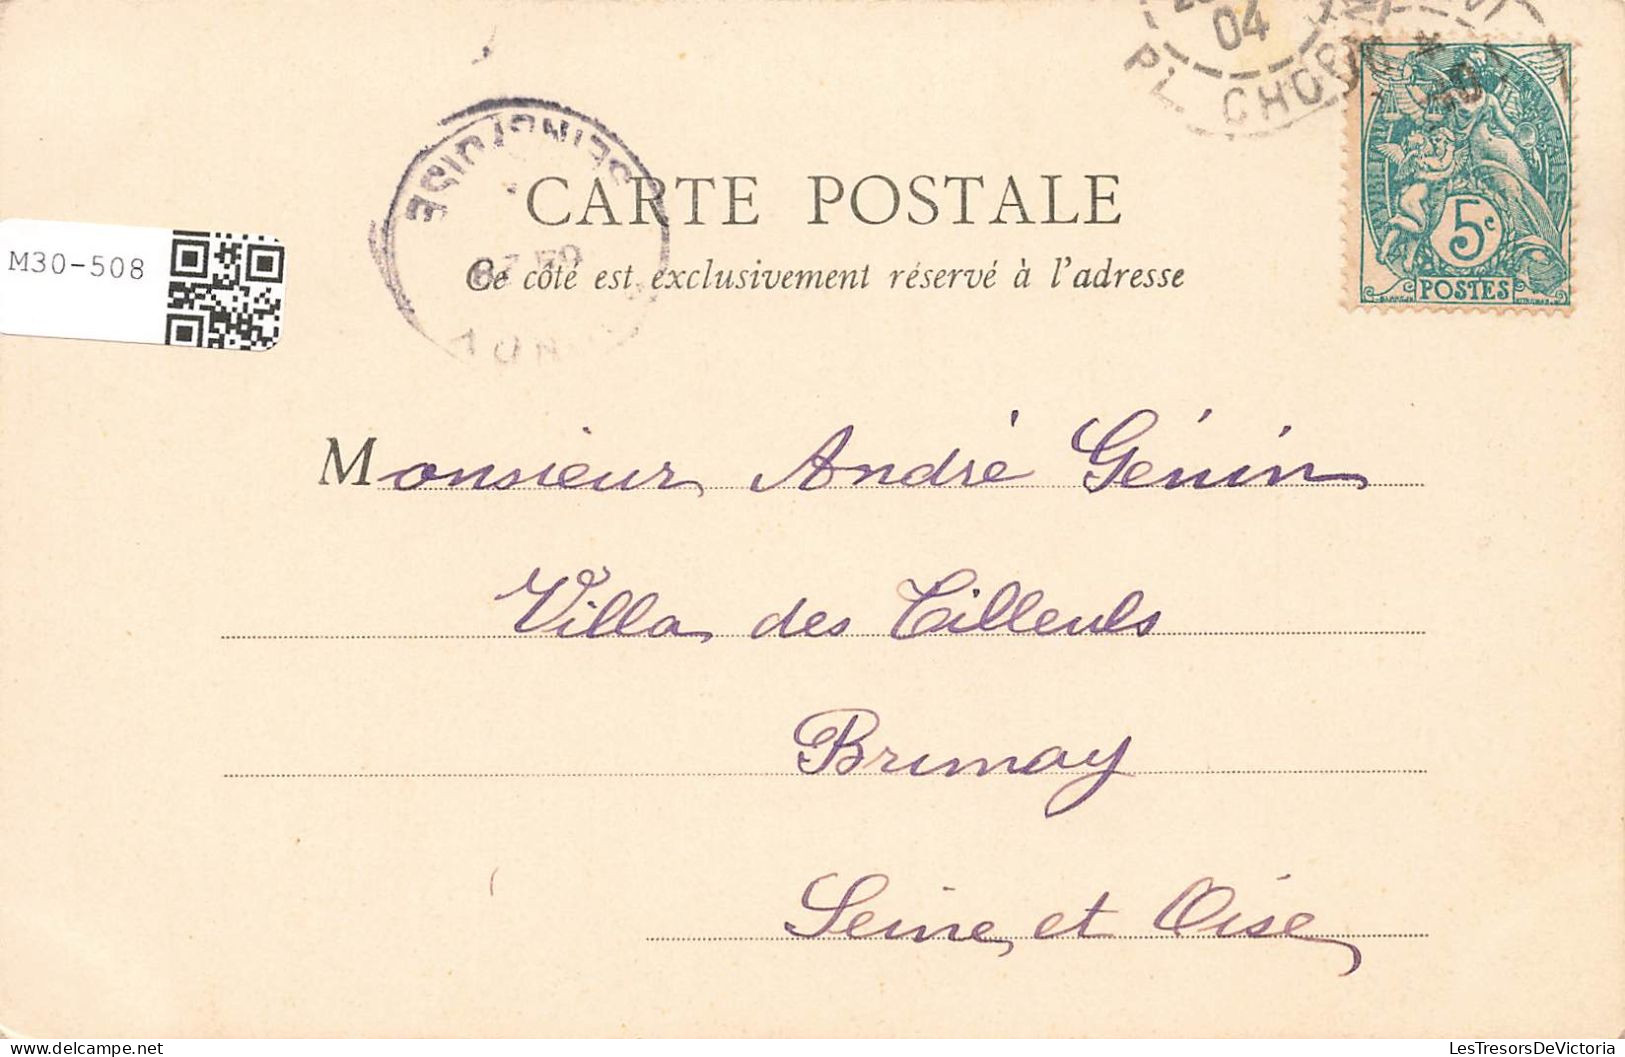 04
PL. CHO
SEINE ET OISE
M30-508
CARTE POSTALE
Ce côté est exclusivement réservé à l'adresse
5c
POSTES
Monsieur André Génin
Villa des Tilleuls
Brunoy
Seine et Oise
LesTresorsDeVictoria